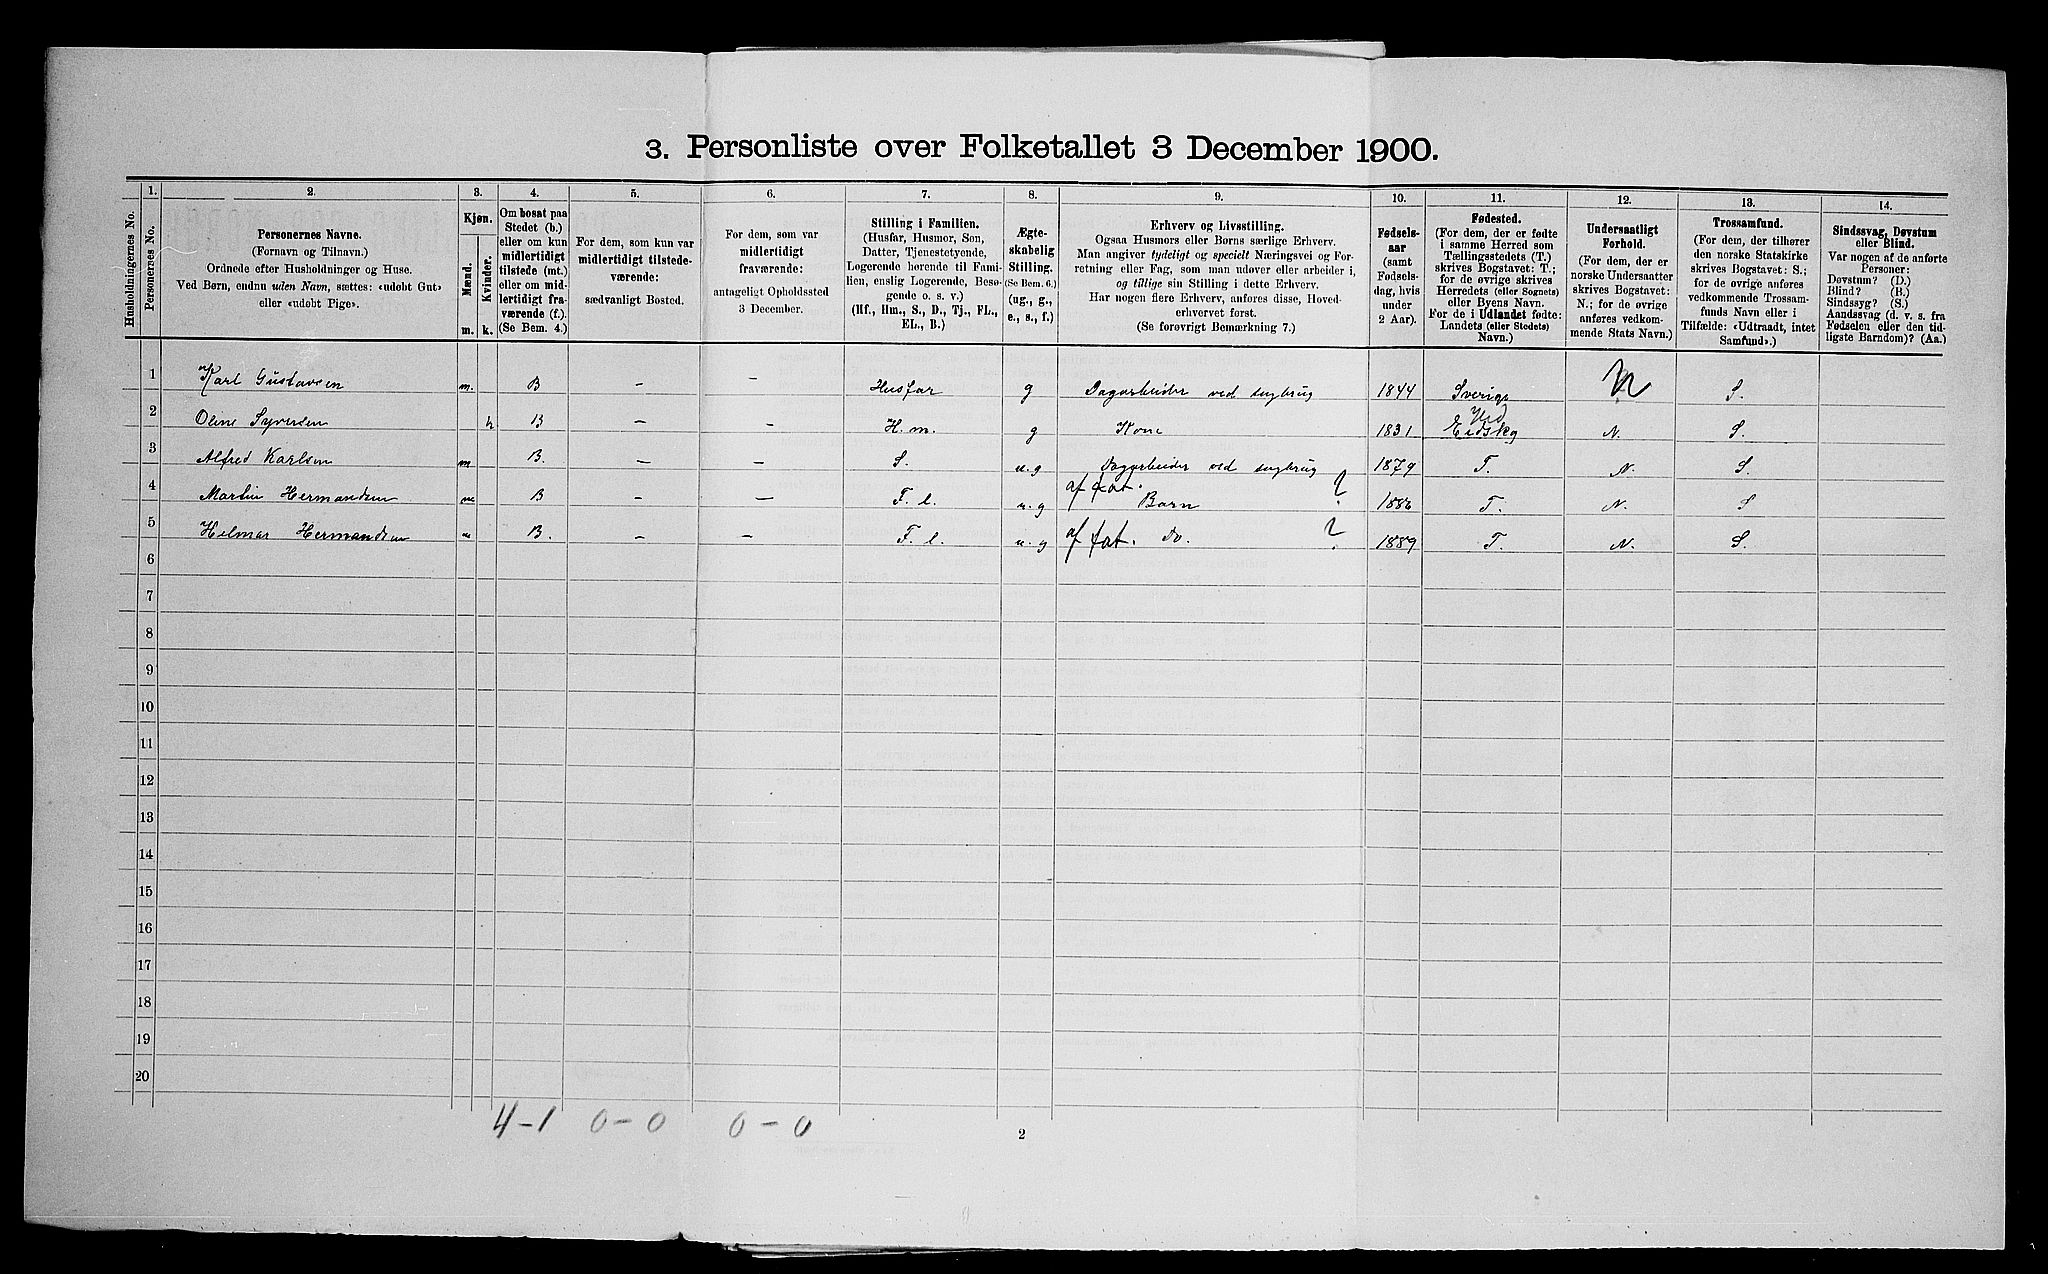 3. Personliste over Folketallet 3 December 1900.
Husholdningernes No.
1.
Personernes No.
2.
Personernes Navne.
(Fornavn og Tilnavn.)
Ordnede efter Husholdninger og Huse.
Ved Børn, endnu uden Navn, sættes: «udøbt Gut»
eller «udøbt Pige».
3.
Kjøn.
Mænd.
Kvinder.
m.
k.
4.
Om bosat paa
Stedet (b.)
eller om kun
midlertidigt
tilstede (mt.)
eller om mid-
lertidigt fra-
værende (f.).
(Se Bem. 4.)
5.
For dem, som kun var
midlertidigt tilstede-
værende:
sædvanligt Bosted.
6.
For dem, som var
midlertidigt
fraværende:
antageligt Opholdssted
3 December.
7.
Stilling i Familien.
(Husfar, Husmor, Søn,
Datter, Tjenestetyende,
Logerende hørende til Fami-
lien, enslig Logerende, Besø-
gende o. s. v.)
(Hf., Hm., S., D., Tj., FL.,
EL., B.)
8.
Ægte-
skabelig
Stilling.
(Se Bem. 6.)
(ug., g.,
e., s., f.)
9.
Erhverv og Livsstilling.
Ogsaa Husmors eller Børns særlige Erhverv.
Man angiver tydeligt og specielt Næringsvei og For-
retning eller Fag, som man udøver eller arbeider i,
og tillige sin Stilling i dette Erhverv.
Har nogen flere Erhverv, anføres disse, Hoved-
erhvervet først.
(Se forøvrigt Bemærkning 7.)
10.
Fødsels-
aar
(samt
Fødsels-
dag, hvis
under
2 Aar).
11.
Fødested.
(For dem, der er fødte
i samme Herred som
Tællingsstedets (T.)
skrives Bogstavet: T.;
for de øvrige skrives
Herredets (eller Sognets)
eller Byens Navn.
For de i Udlandet fødte:
Landets (eller Stedets)
Navn.)
12.
Undersaatligt
Forhold.
(For dem, der er
norske Undersaatter
skrives Bogstavet:
N.; for de øvrige
anføres vedkom-
mende Stats Navn.)
13.
Trossamfund.
(For dem, der tilhører
den norske Statskirke
skrives Bogstavet: S.;
for de øvrige anføres
vedkommende Trossam-
funds Navn eller i
Tilfælde: «Udtraadt, intet
Samfund».)
14.
Sindssvag, Døvstum
eller Blind.
Var nogen af de anførte
Personer:
Døvstum? (D.)
Blind? (B.)
Sindssyg? (S.)
Aandssvag (d. v. s. fra
Fødselen eller den tid-
ligste Barndom)? (Aa.)
1 Karl Gustavsen m. B – – Husfar g Dagarbeider ved sagbrug 1844 Sverige N S.
2 Oline Syversen k B – – H.m. g Kone 1831 Eidskg Hed N. S.
3 Alfred Karlsen m B. – – S. u.g Dagarbeider ved sagbrug 1879 T. N. S.
4 Martin Hermandsen m B – – F. l. u.g af fat. Barn ? 1886 T. N. S
5 Helmar Hermandsen m B. – – F. l. u.g af fat. Do. ? 1889 T. N. S.
6
7
8
9
10
11
12
13
14
15
16
17
18
19
20
4–1 0–0 0–0
2